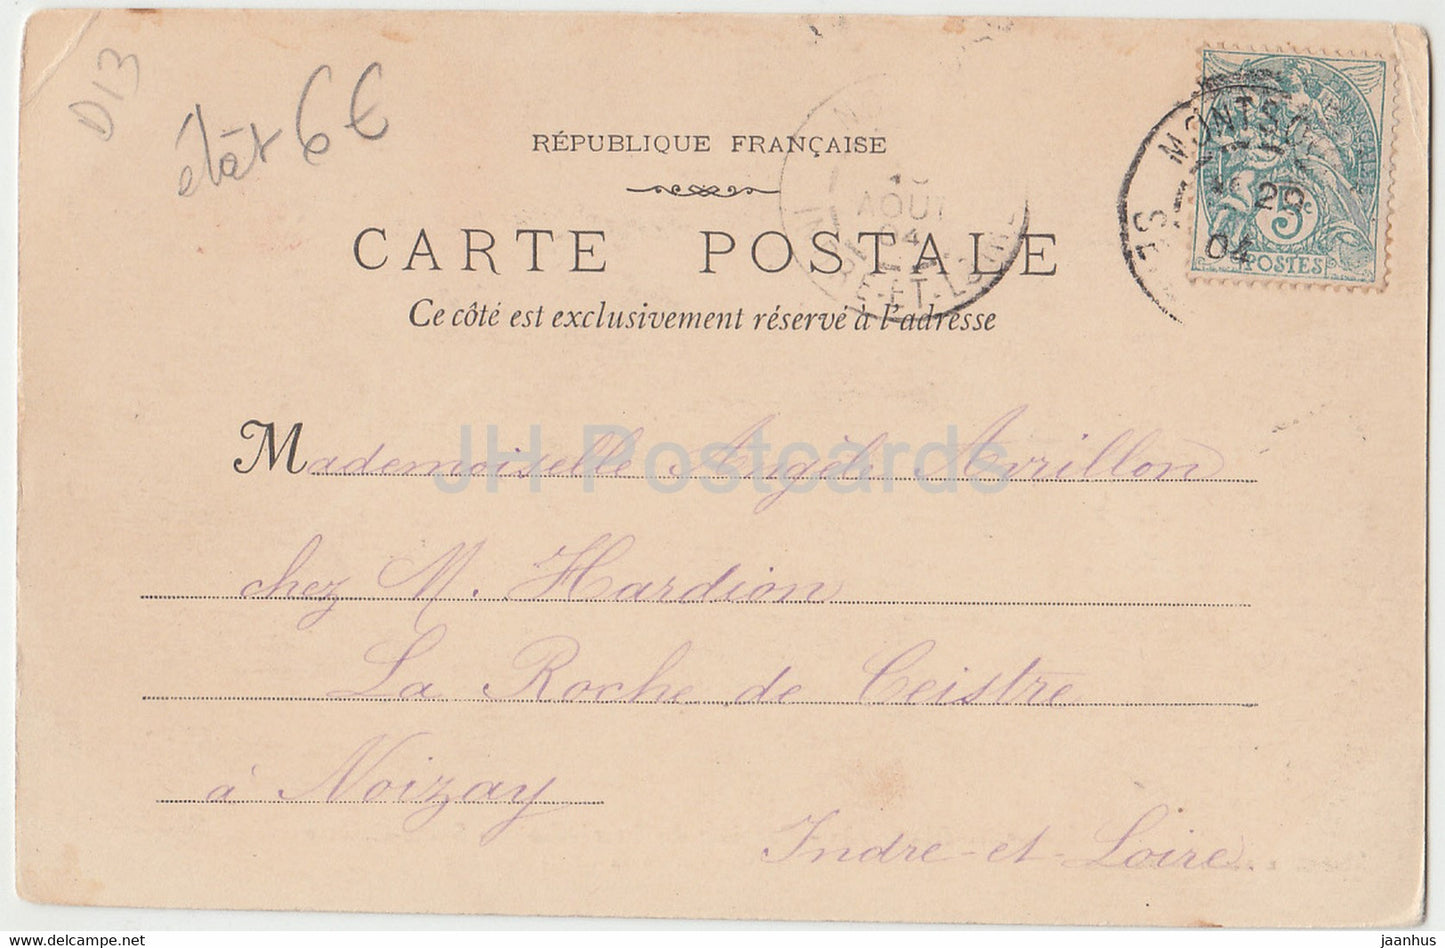 D13
état 6€
RÉPUBLIQUE FRANÇAISE
CARTE POSTALE
Ce côté est exclusivement réservé à l'adresse
AOUT
04
E-ET-LOIRE
MONTS
20
04
5c
POSTES
JH Postcards
Mademoiselle Angèle Avrillon
chez M. Hardion
La Roche de Ceistre
à Noizay
Indre-et-Loire
jaanhus.com